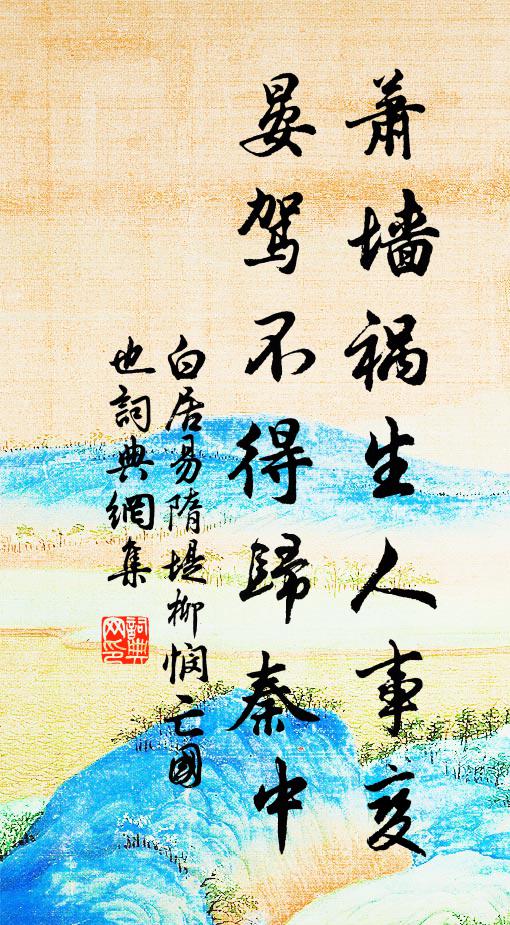 萧墙祸生人事变
晏驾不得歸秦中
白居易隋堤柳悯亡國
也詞典網集
詞典
网印